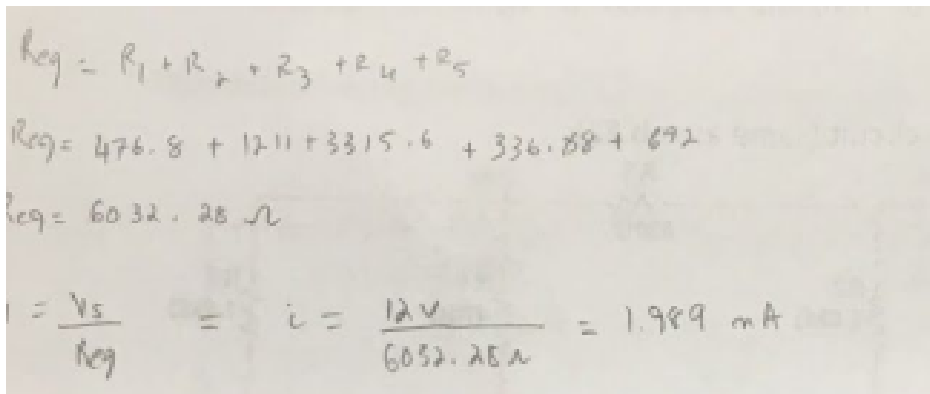 Req = R1 + R2 + R3 + R4 + R5
Req = 476.8 + 1211 + 3315.6 + 336.88 + 692
Req = 6032.28 Ω
i = Vs / Req = i = 12V / 6032.28 Ω = 1.989 mA